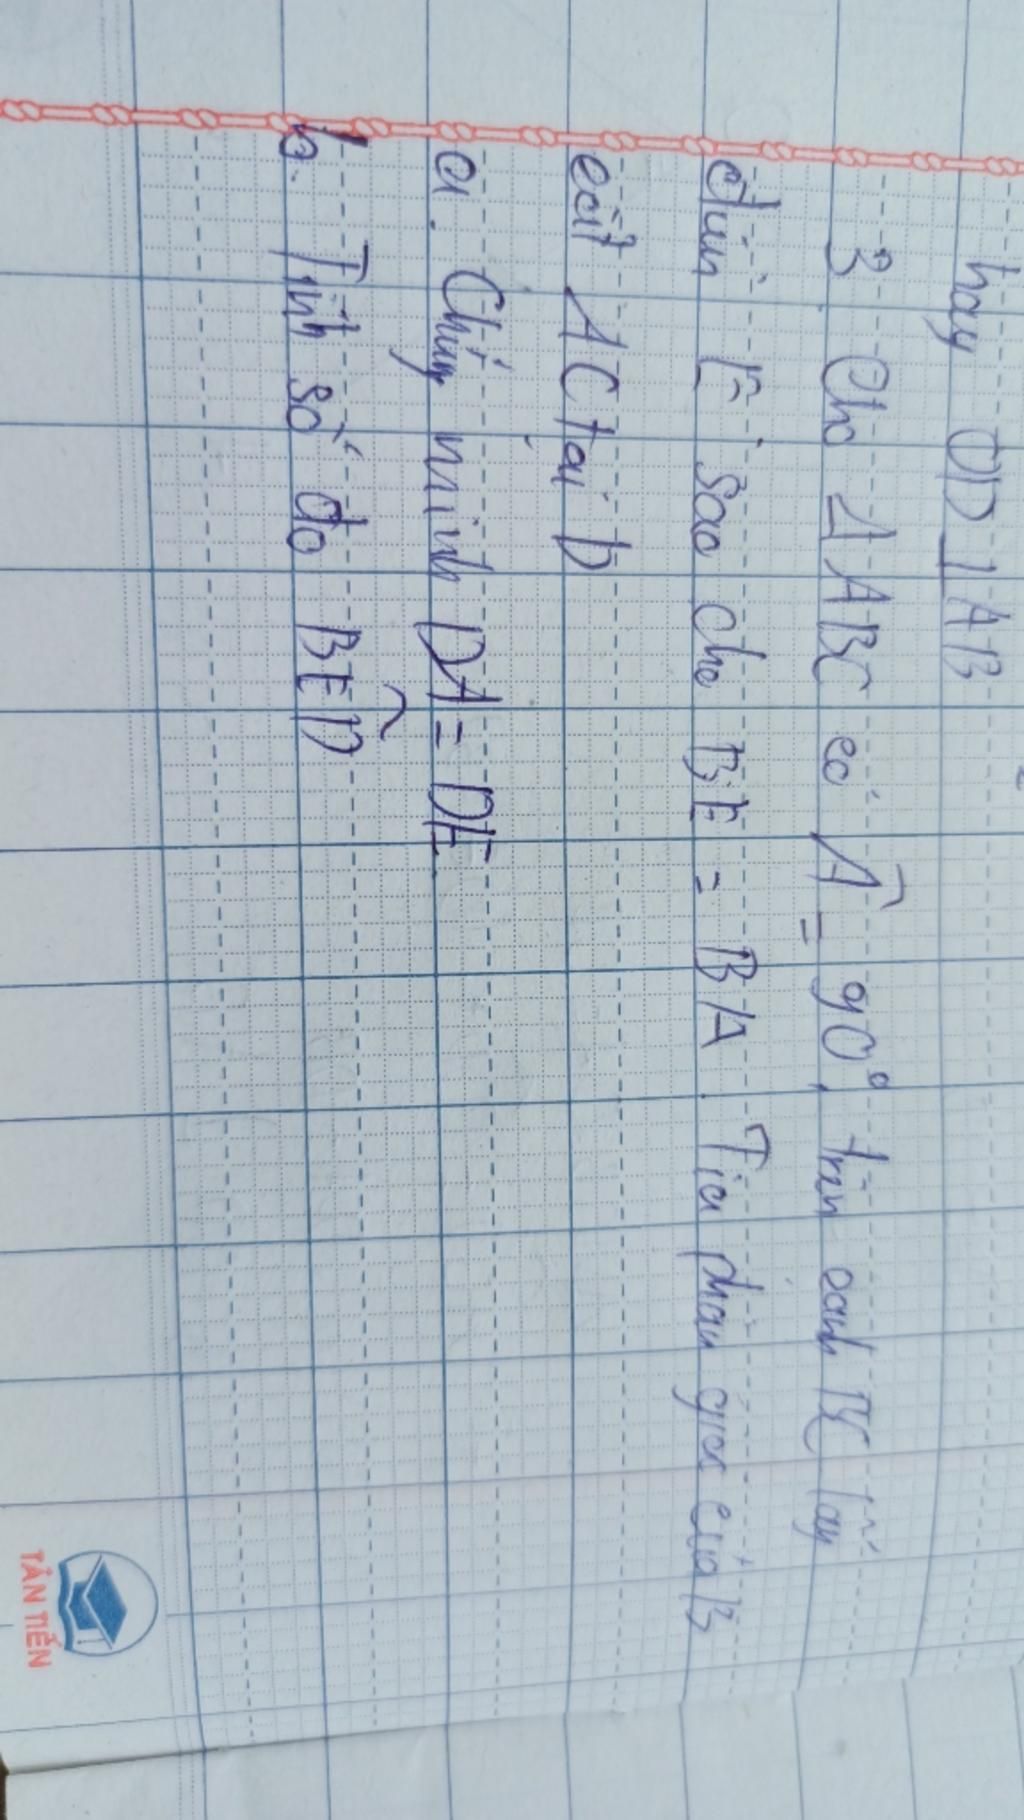 hay OD ⊥ AB
3 Cho Δ ABC có Â = 90°, trên cạnh BC lấy
điểm E sao cho BE = BA. Tia phân giác của B
cắt AC tại D
a. Chứng minh DA = DE.
b. Tính số đo BÊD
TÂN TIẾN